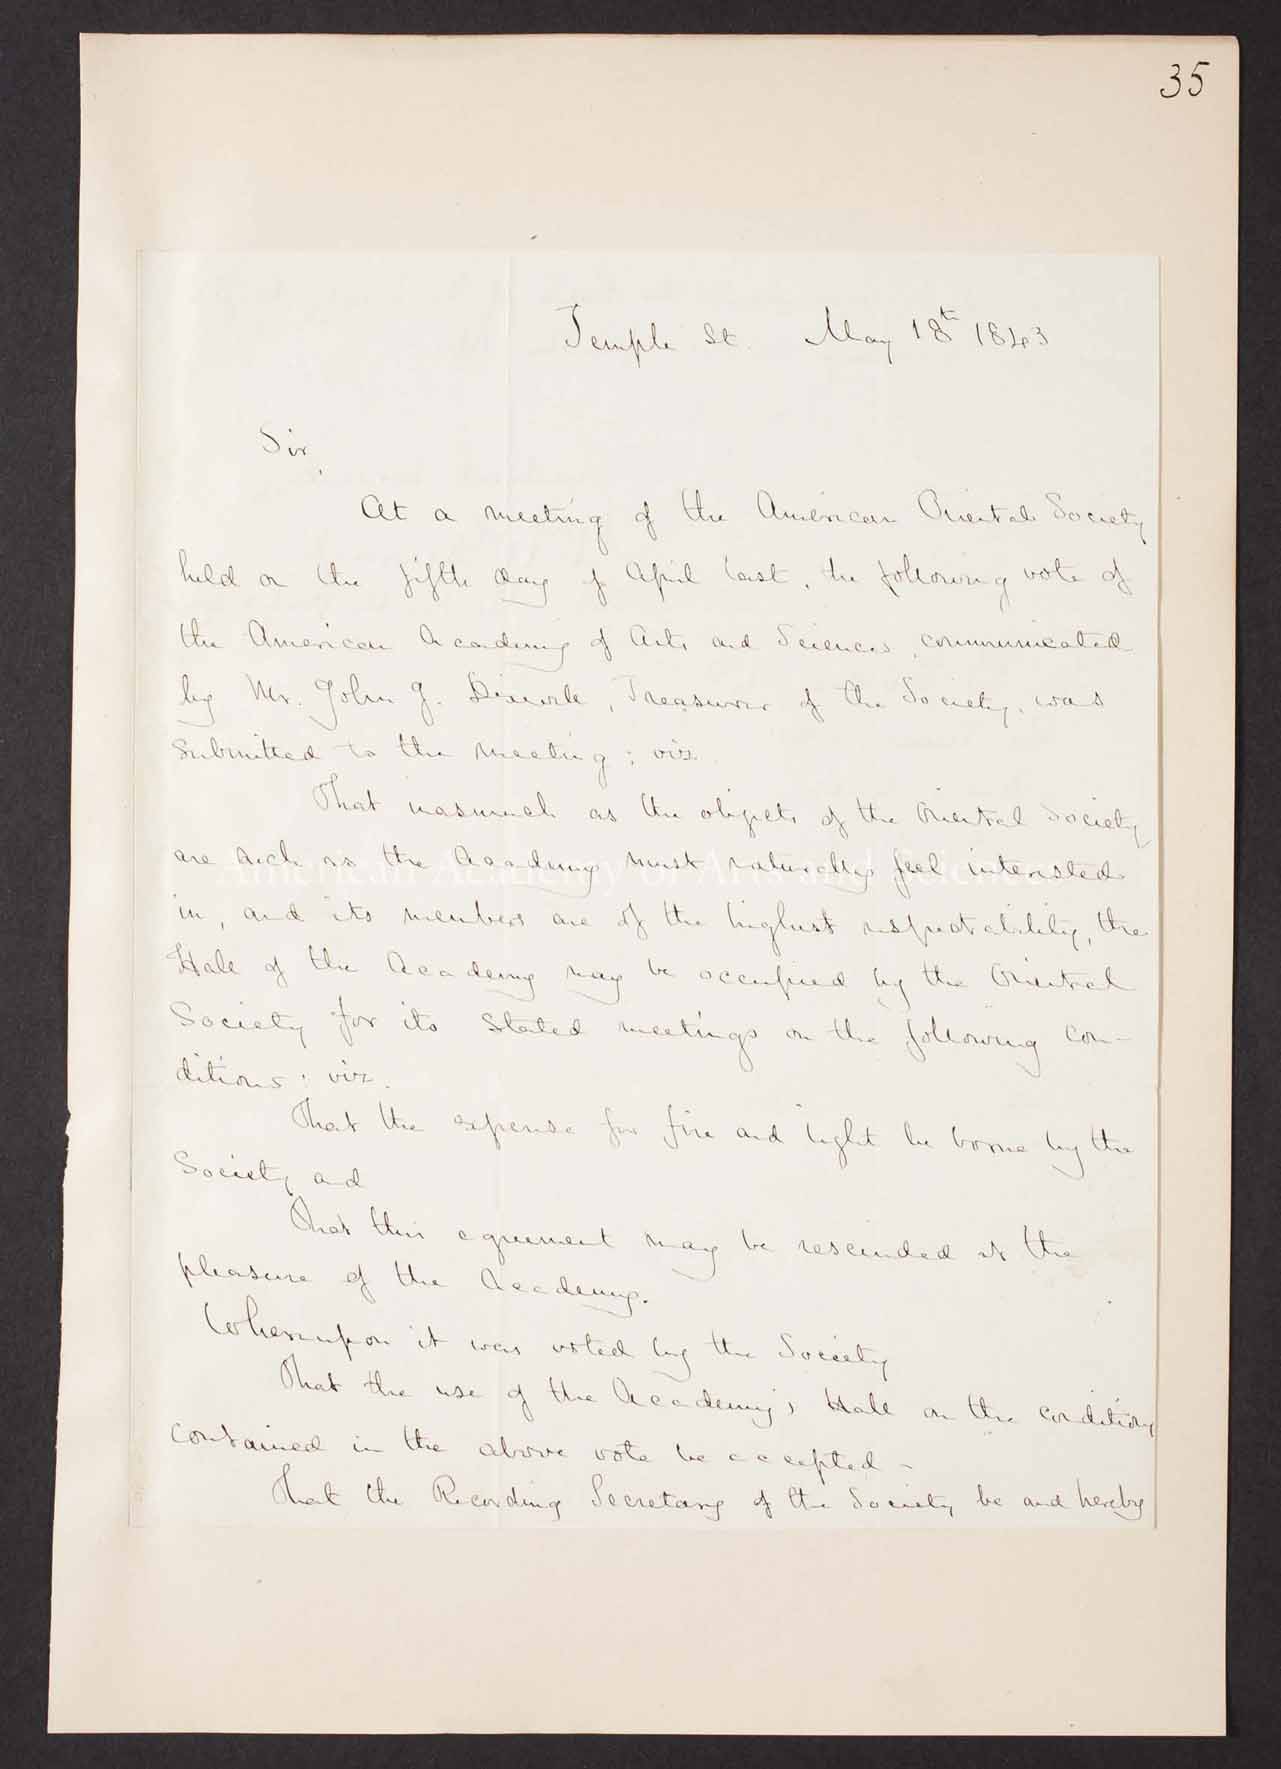 35
Temple St. May 18th 1843
Sir,
At a meeting of the American Oriental Society
held on the fifth day of April last, the following vote of
the American Academy of Arts and Sciences, communicated
by Mr. John J. Dixwell, Treasurer of the Society, was
submitted to the meeting; viz.
That inasmuch as the objects of the Oriental Society
are such as the Academy must naturally feel interested
in, and its members are of the highest respectability, the
Hall of the Academy may be occupied by the Oriental
Society for its stated meetings on the following con-
ditions: viz.
That the expense for fire and light be borne by the
Society and
That this agreement may be rescinded at the
pleasure of the Academy.
Whereupon it was voted by the Society
That the use of the Academy's Hall on the conditions
contained in the above vote be accepted –
That the Recording Secretary of the Society be and hereby
American Academy of Arts and Sciences